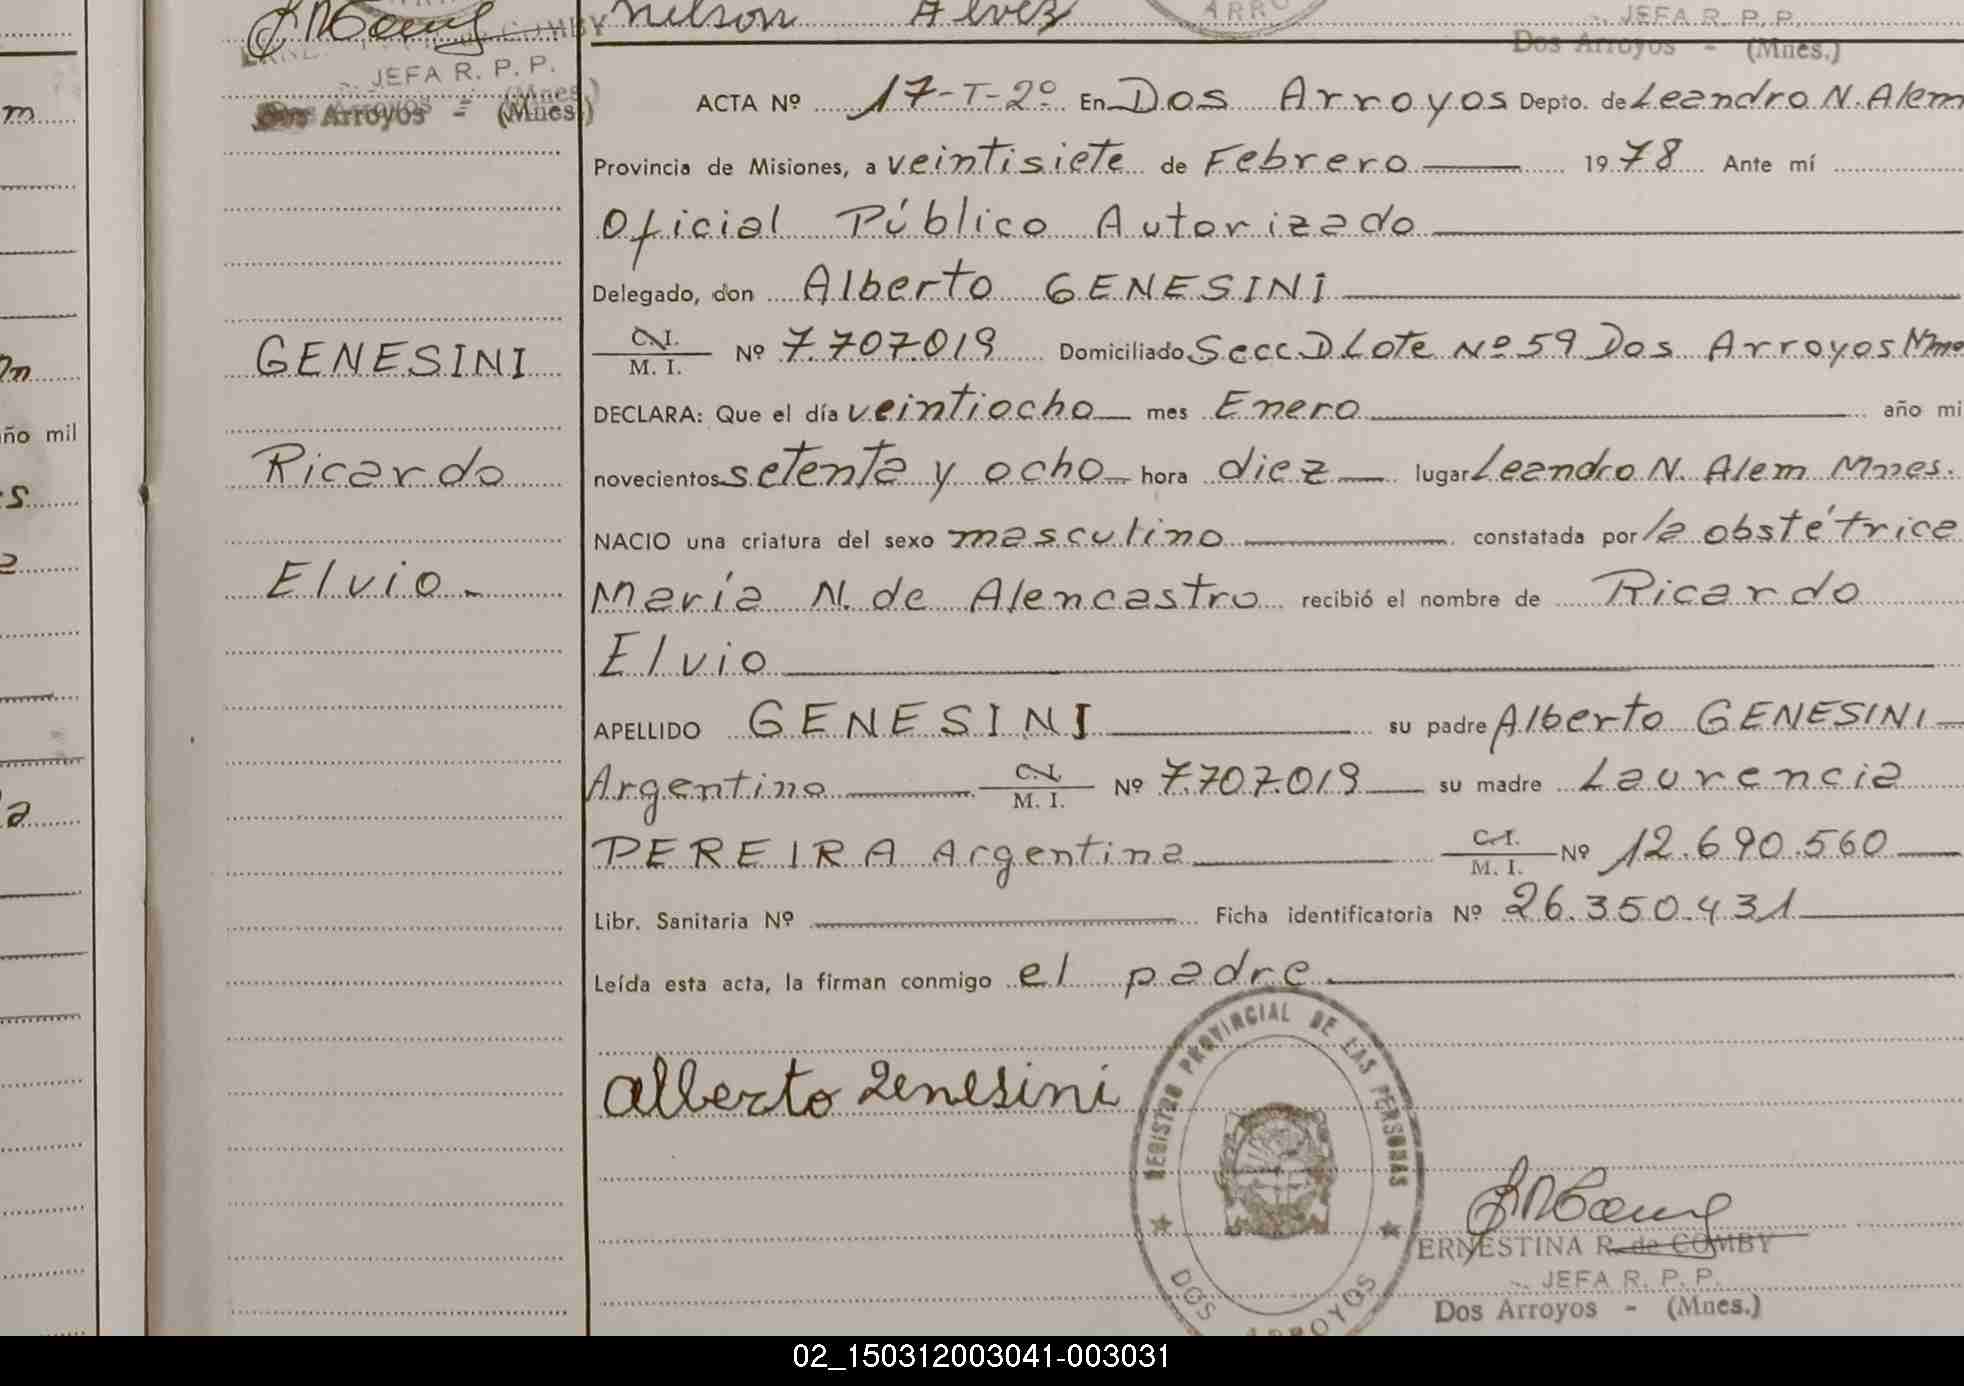 Nelson Alvez
JEFA R. P. P.
Dos Arroyos - (Mnes.)
JEFA R. P. P.
Dos Arroyos - (Mnes.)
ACTA Nº 17-T-2º En Dos Arroyos Depto. de Leandro N. Alem
Provincia de Misiones, a veintisiete de Febrero 1978 Ante mí
Oficial Público Autorizado
Delegado, don Alberto GENESINI
C.I. M. I. Nº 7.707.019 Domiciliado Secc. D Lote Nº 59 Dos Arroyos Mnes
DECLARA: Que el día veintiocho mes Enero año mi
novecientos setenta y ocho hora diez lugar Leandro N. Alem Mnes.
NACIO una criatura del sexo masculino constatada por la obstétrica
María N. de Alencastro recibió el nombre de Ricardo
Elvio
APELLIDO GENESINI su padre Alberto GENESINI
Argentino C.I. M. I. Nº 7.707.019 su madre Laurencia
PEREIRA Argentina C.I. M. I. Nº 12.690.560
Libr. Sanitaria Nº Ficha identificatoria Nº 26.350.431
Leída esta acta, la firman conmigo el padre
Alberto Genesini
GENESINI
Ricardo
Elvio
REGISTRO PROVINCIAL DE LAS PERSONAS
DOS ARROYOS
ERNESTINA R. de COMBY
JEFA R. P. P.
Dos Arroyos - (Mnes.)
ño mil
02_150312003041-003031